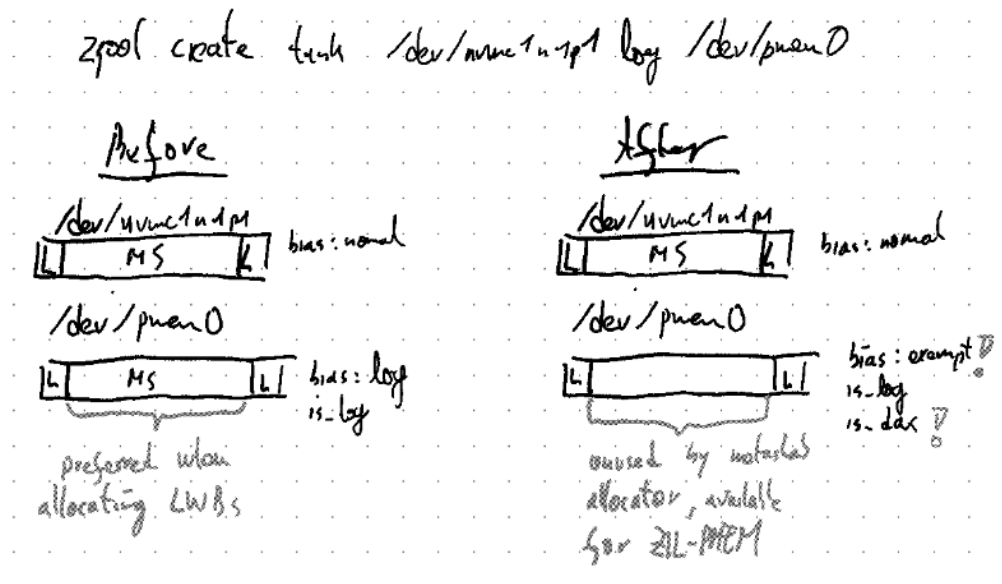 zpool create tank /dev/nvme1n1p1 log /dev/pmem0
Before
/dev/nvme1n1p1
L MS L
bias: normal
/dev/pmem0
L MS L
bias: log
is_log
preferred when
allocating LWBs
After
/dev/nvme1n1p1
L MS L
bias: normal
/dev/pmem0
L L
bias: exempt !
is_log
is_dax !
unused by metaslab
allocator, available
for ZIL-PMEM